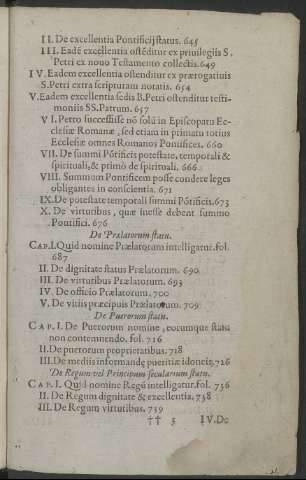 II. De excellentia Pontificij status. 645
III. Eadē excellentia ostēditur ex priuilegiis S.
Petri ex nouo Testamento collectis. 649
IV. Eadem excellentia ostenditur ex prærogatiuis
S. Petri extra scripturam notatis. 654
V. Eadem excellentia sedis B. Petri ostenditur testi-
moniis SS. Patrum. 657
VI. Petro successisse nō solū in Episcopatu Ec-
clesiæ Romanæ, sed etiam in primatu totius
Ecclesiæ omnes Romanos Pontifices. 660
VII. De summi Pōtificis potestate, temporali &
spirituali, & primò de spirituali. 666
VIII. Summum Pontificem posse condere leges
obligantes in conscientia. 671
IX. De potestate temporali summi Pōtificis. 673
X. De virtutibus, quæ inesse debent summo
Pontifici. 676
De Prælatorum statu.
CAP. I. Quid nomine Prælatorum intelligatur. fol.
687
II. De dignitate status Prælatorum. 690
III. De virtutibus Prælatorum. 693
IV. De officio Prælatorum. 700
V. De vitiis præcipuis Prælatorum. 709
De Puerorum statu.
CAP. I. De Puerorum nomine, eorumque statu
non contemnendo. fol. 716
II. De puerorum proprietatibus. 718
III. De mediis informandę pueritię idoneis. 726
De Regum vel Principum secularium statu.
CAP. I. Quid nomine Regū intelligatur. fol. 736
II. De Regum dignitate & excellentia. 738
III. De Regum virtutibus. 739
†† 3 IV. De